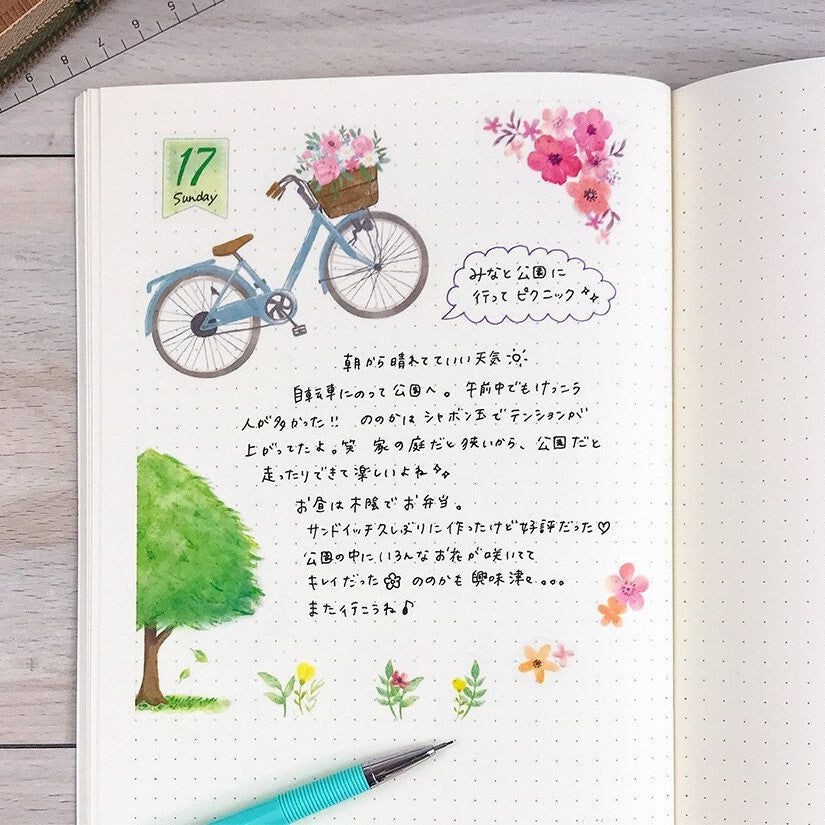 9 8 7 6 5
17
Sunday
みなと公園に
行って ピクニック
朝から晴れてていい天気
自転車にのって公園へ。 午前中でもけっこう
人が多かった!! ののかは シャボン玉でテンションが
上がってたよ。笑 家の庭だと狭いから、公園だと
走ったりできて楽しいよね
お昼は木陰でお弁当。
サンドイッチ久しぶりに作ったけど好評だった♡
公園の中にいろんなお花が咲いてて
キレイだった ののかも興味津々...
また行こうね♪